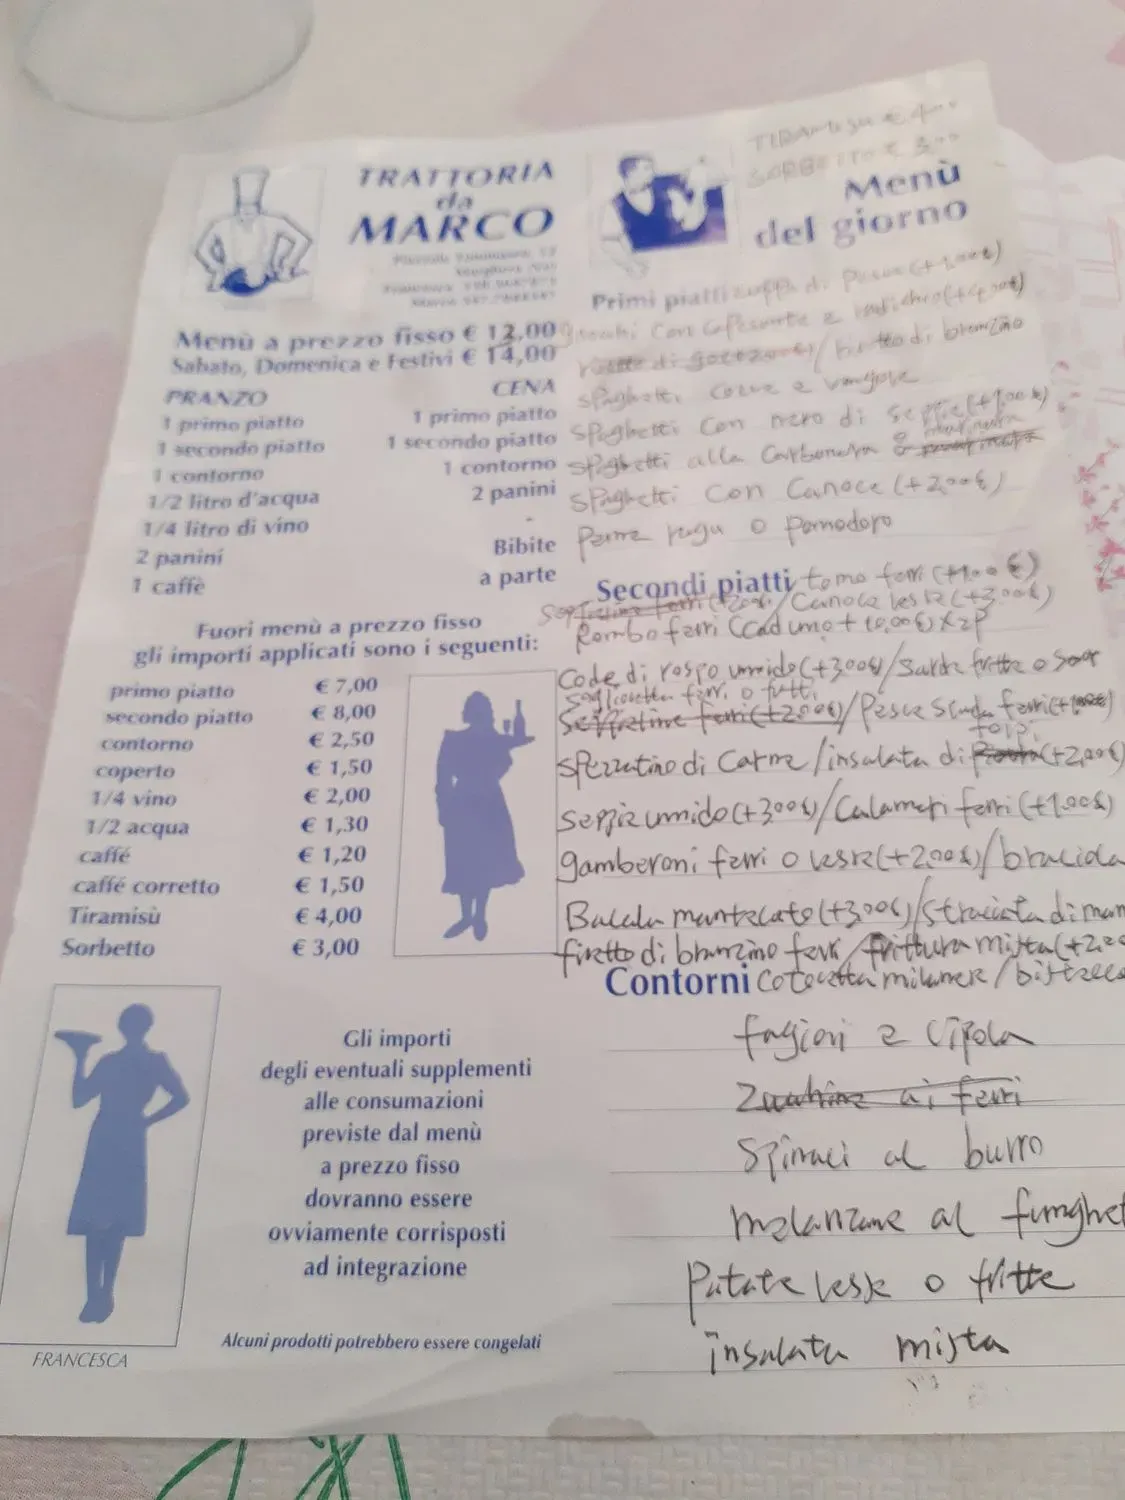 TRATTORIA
da
MARCO
Menù a prezzo fisso € 12,00
Sabato, Domenica e Festivi € 14,00
PRANZO
1 primo piatto
1 secondo piatto
1 contorno
1/2 litro d'acqua
1/4 litro di vino
2 panini
1 caffè
CENA
1 primo piatto
1 secondo piatto
1 contorno
2 panini
Bibite
a parte
Fuori menù a prezzo fisso
gli importi applicati sono i seguenti:
primo piatto € 7,00
secondo piatto € 8,00
contorno € 2,50
coperto € 1,50
1/4 vino € 2,00
1/2 acqua € 1,30
caffé € 1,20
caffé corretto € 1,50
Tiramisù € 4,00
Sorbetto € 3,00
FRANCESCA
Gli importi
degli eventuali supplementi
alle consumazioni
previste dal menù
a prezzo fisso
dovranno essere
ovviamente corrisposti
ad integrazione
Alcuni prodotti potrebbero essere congelati
TIRAMISU €
SORBETTO €
Menù
del giorno
Primi piatti zuppa di
con e
di /filetto di branzino
spaghetti cozze e vongole
spaghetti con nero di seppie (+1,00€)
spaghetti alla carbonara o
spaghetti con canoce (+2,00€)
penne ragu o pomodoro
Secondi piatti tomo ferri (+1,00€)
/canoce lesse (+3,00€)
Rombo ferri (cadauno + 10,00€) x2p
Code di rospo umido (+3,00€)/sarde fritte o
ferri o fritti
seppioline ferri (+2,00€)/Pesce spada ferri
spezzatino di carne/insalata di folpi (+2,00€)
seppie umido (+3,00€)/Calamari ferri (+1,00€)
gamberoni ferri o lesse (+2,00€)/braciola
Bacala mantecato (+3,00€)/straciata di
filetto di branzino ferri/frittura mista (+2,00
Contorni cotoletta milanese/
fagioli e cipola
Zucchine ai ferri
spinaci al burro
melanzane al
Patate lesse o fritte
insalata mista